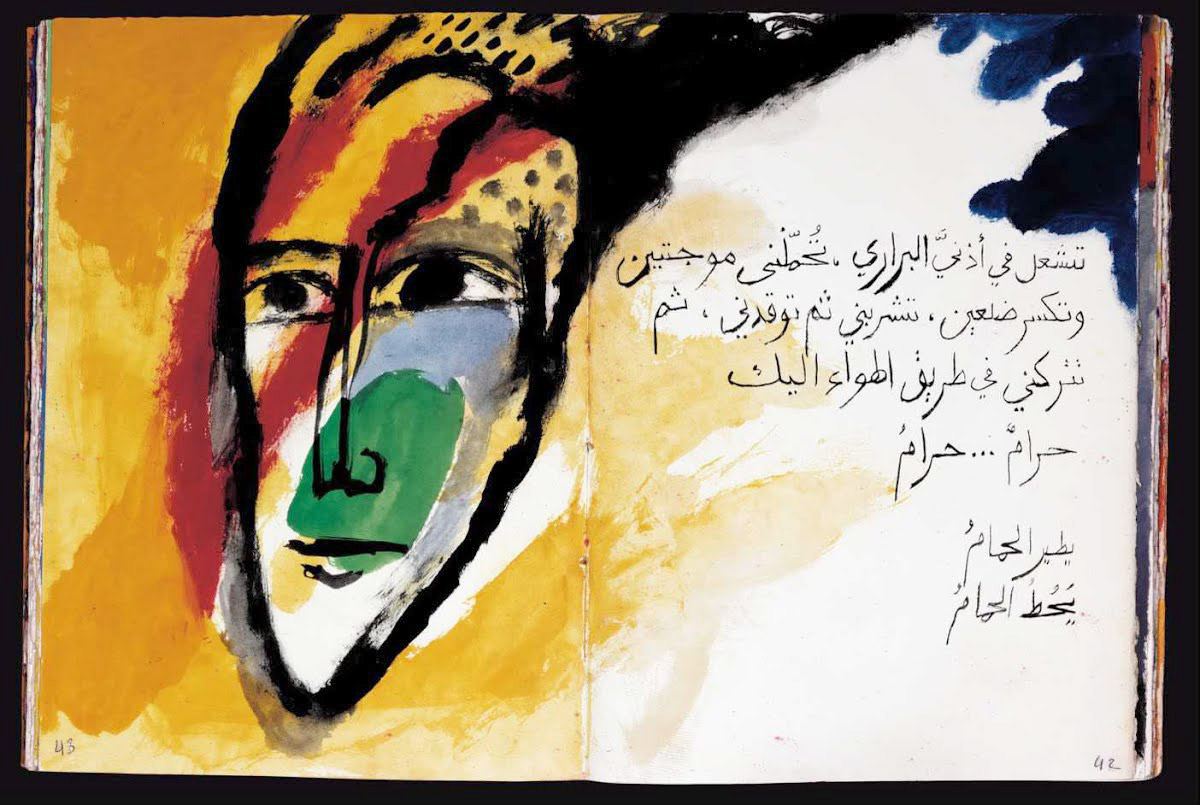 تشعل في أذنيَّ البراري ، تُحمّلُني موجتين
وتكسر ضلعين ، تشربني ثم توقدني ، ثم
تتركني في طريق الهواء اليك
حرامٌ ... حرامُ
يطير الحمامُ
يَحُطُ الحمامُ
43
42